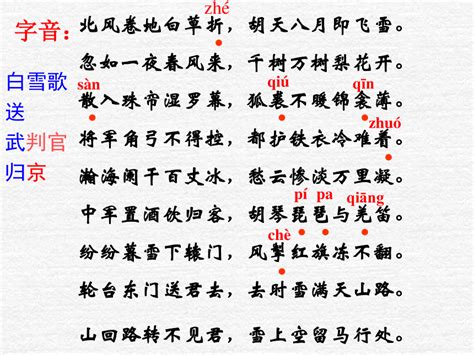 zhé
字音：北风卷地白草折，胡天八月即飞雪。
忽如一夜春风来，千树万树梨花开。
白雪歌
sàn qiú qīn
散入珠帘湿罗幕，狐裘不暖锦衾薄。
送
zhuó
武判官
将军角弓不得控，都护铁衣冷难着。
归京
瀚海阑干百丈冰，愁云惨淡万里凝。
pí pa qiāng
中军置酒饮归客，胡琴琵琶与羌笛。
chè
纷纷暮雪下辕门，风掣红旗冻不翻。
轮台东门送君去，去时雪满天山路。
山回路转不见君，雪上空留马行处。